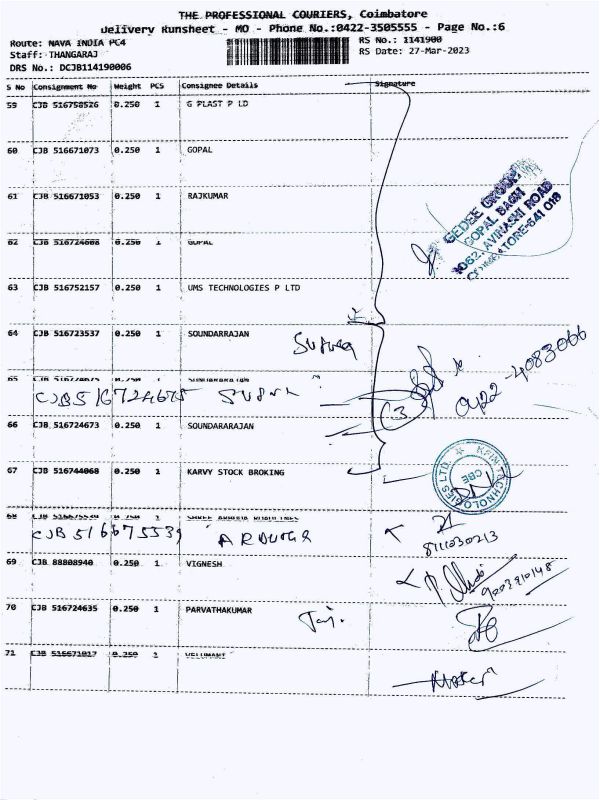 THE PROFESSIONAL COURIERS, Coimbatore
Delivery Runsheet - MO - Phone No.:0422-3505555 - Page No.:6
Route: NAVA INDIA PC4
RS No.: 1141900
Staff: THANGARAJ
RS Date: 27-Mar-2023
DRS No.: DCJB114190006
S No Consignment No Weight PCS Consignee Details Signature
59 CJB 516758526 0.250 1 G PLAST P LD
60 CJB 516671073 0.250 1 GOPAL
61 CJB 516671053 0.250 1 RAJKUMAR
GEDEE GROUP
GOPAL BAGH
1062, AVINASHI ROAD
COIMBATORE-641 018
62 CJB 516724668 0.250 1 GOPAL
63 CJB 516752157 0.250 1 UMS TECHNOLOGIES P LTD
64 CJB 516723537 0.250 1 SOUNDARRAJAN
0422-4083066
65 CJB 516724675 0.250 1 SOUNDARARAJAN
CJB 516724675
66 CJB 516724673 0.250 1 SOUNDARARAJAN
67 CJB 516744068 0.250 1 KARVY STOCK BROKING
KFIN TECHNOLOGIES LTD
CBE
68 CJB 516675539 0.250 1
CJB 516675539
8111030213
69 CJB 88808940 0.250 1 VIGNESH
70 CJB 516724635 0.250 1 PARVATHAKUMAR
71 CJB 516671017 0.250 1 VELUMANI